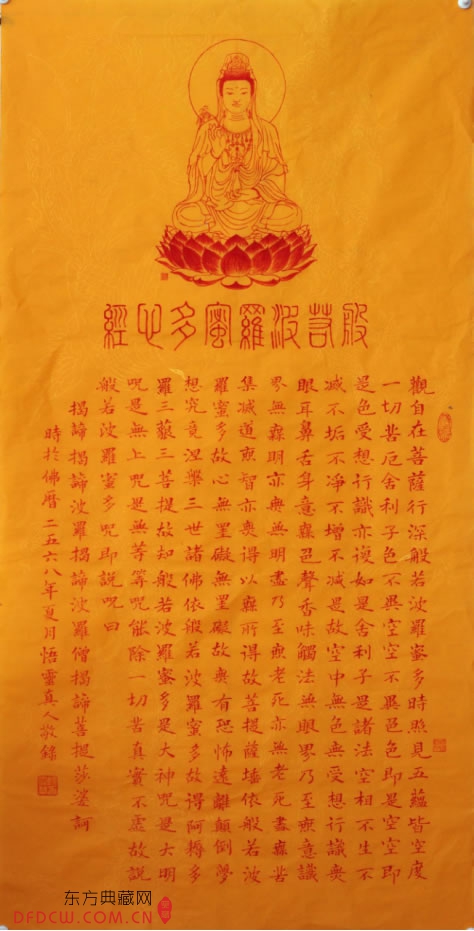 般若波羅蜜多心經
觀自在菩薩行深般若波羅蜜多時照見五蘊皆空度
一切苦厄舍利子色不異空空不異色色即是空空即
是色受想行識亦復如是舍利子是諸法空相不生不
滅不垢不淨不增不減是故空中無色無受想行識無
眼耳鼻舌身意無色聲香味觸法無眼界乃至無意識
界無無明亦無無明盡乃至無老死亦無老死盡無苦
集滅道無智亦無得以無所得故菩提薩埵依般若波
羅蜜多故心無罣礙無罣礙故無有恐怖遠離顛倒夢
想究竟涅槃三世諸佛依般若波羅蜜多故得阿耨多
羅三藐三菩提故知般若波羅蜜多是大神呪是大明
呪是無上呪是無等等呪能除一切苦真實不虛故說
般若波羅蜜多呪即說呪曰
揭諦揭諦波羅揭諦波羅僧揭諦菩提莎婆訶
時於佛曆二五六八年夏月悟靈真人敬錄
东方典藏网
DFDCW.COM.CN